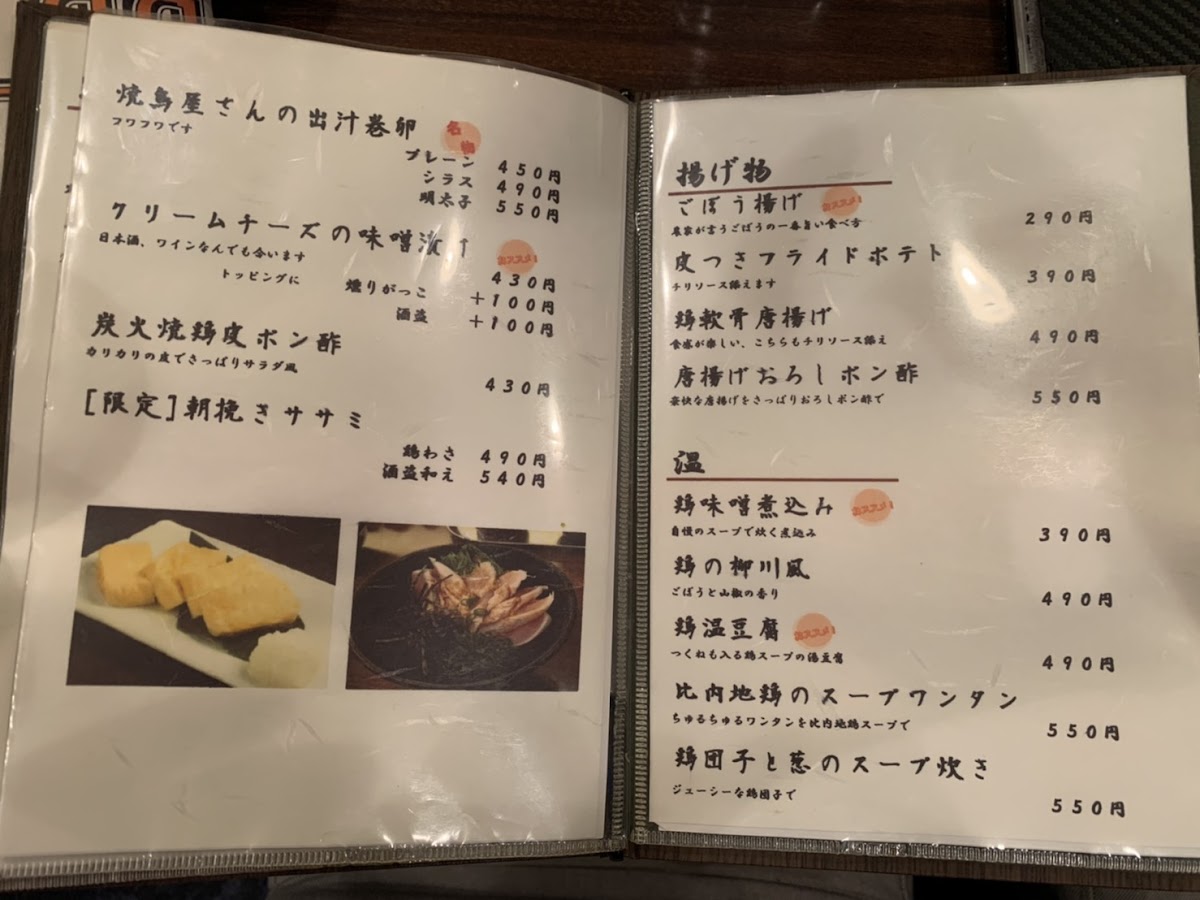 焼鳥屋さんの出汁巻卵 名物
フワフワです
プレーン 450円
シラス 490円
明太子 550円
クリームチーズの味噌漬け おススメ!
日本酒、ワインなんでも合います
430円
トッピングに 燻りがっこ +100円
酒盗 +100円
炭火焼鶏皮ポン酢
カリカリの皮でさっぱりサラダ風
430円
[限定]朝挽きササミ
鶏わさ 490円
酒盗和え 540円
揚げ物
ごぼう揚げ おススメ!
農家が言うごぼうの一番旨い食べ方
290円
皮つきフライドポテト
チリソース添えます
390円
鶏軟骨唐揚げ
食感が楽しい、こちらもチリソース添え
490円
唐揚げおろしポン酢
豪快な唐揚げをさっぱりおろしポン酢で
550円
温
鶏味噌煮込み おススメ!
自慢のスープで炊く煮込み
390円
鶏の柳川風
ごぼうと山椒の香り
490円
鶏温豆腐 おススメ!
つくねも入る鶏スープの湯豆腐
490円
比内地鶏のスープワンタン
ちゅるちゅるワンタンを比内地鶏スープで
550円
鶏団子と葱のスープ炊き
ジューシーな鶏団子で
550円